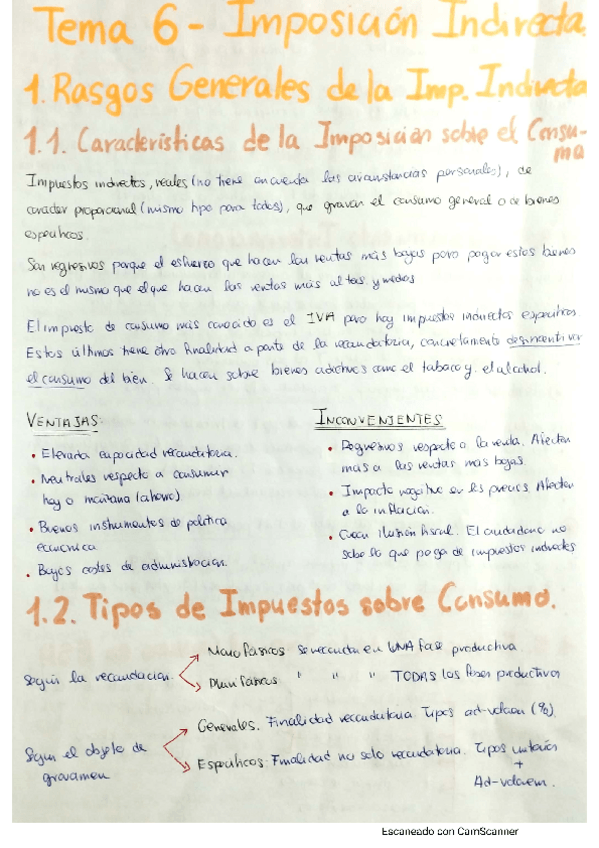 Tema 6 - Imposición Indirecta.
1. Rasgos Generales de la Imp. Indirecta
1.1. Características de la Imposición sobre el Consu-
mo
Impuestos indirectos, reales (no tiene en cuenta las circunstancias personales), de
carácter proporcional (mismo tipo para todos), que gravan el consumo general o de bienes
específicos.
Son regresivos porque el esfuerzo que hacen las rentas más bajas para pagar estos bienes
no es el mismo que el que hacen las rentas más altas y medias
El impuesto de consumo más conocido es el IVA pero hay impuestos indirectos específicos
Estos últimos tiene otra finalidad a parte de la recaudatoria, concretamente desincentivar
el consumo del bien. Se hacen sobre bienes adictivos como el tabaco y el alcohol.
VENTAJAS:
• Elevada capacidad recaudatoria.
• Neutrales respecto a consumir
hoy o mañana (ahorro)
• Buenos instrumentos de política
económica
• Bajos costes de administración.
INCONVENIENTES
• Regresivos respecto a la renta. Afectan
más a las rentas más bajas.
• Impacto negativo en los precios Afectan
a la inflación.
• Crean ilusión fiscal. El ciudadano no
sabe lo que paga de impuestos indirectos
1.2. Tipos de Impuestos sobre Consumo.
Según la recaudación
Monofásicos se recauda en UNA fase productiva
Plurifásicos " " " TODAS las fases productivas
Según el objeto de
gravamen
Generales. Finalidad recaudatoria. Tipos ad-valorem (%).
Específicos: Finalidad no solo recaudatoria. Tipos unitarios
+
Ad-valorem.
Escaneado con CamScanner